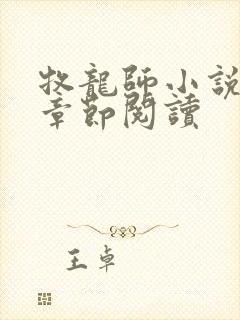 牧龍師小說
章節閱讀
王卓